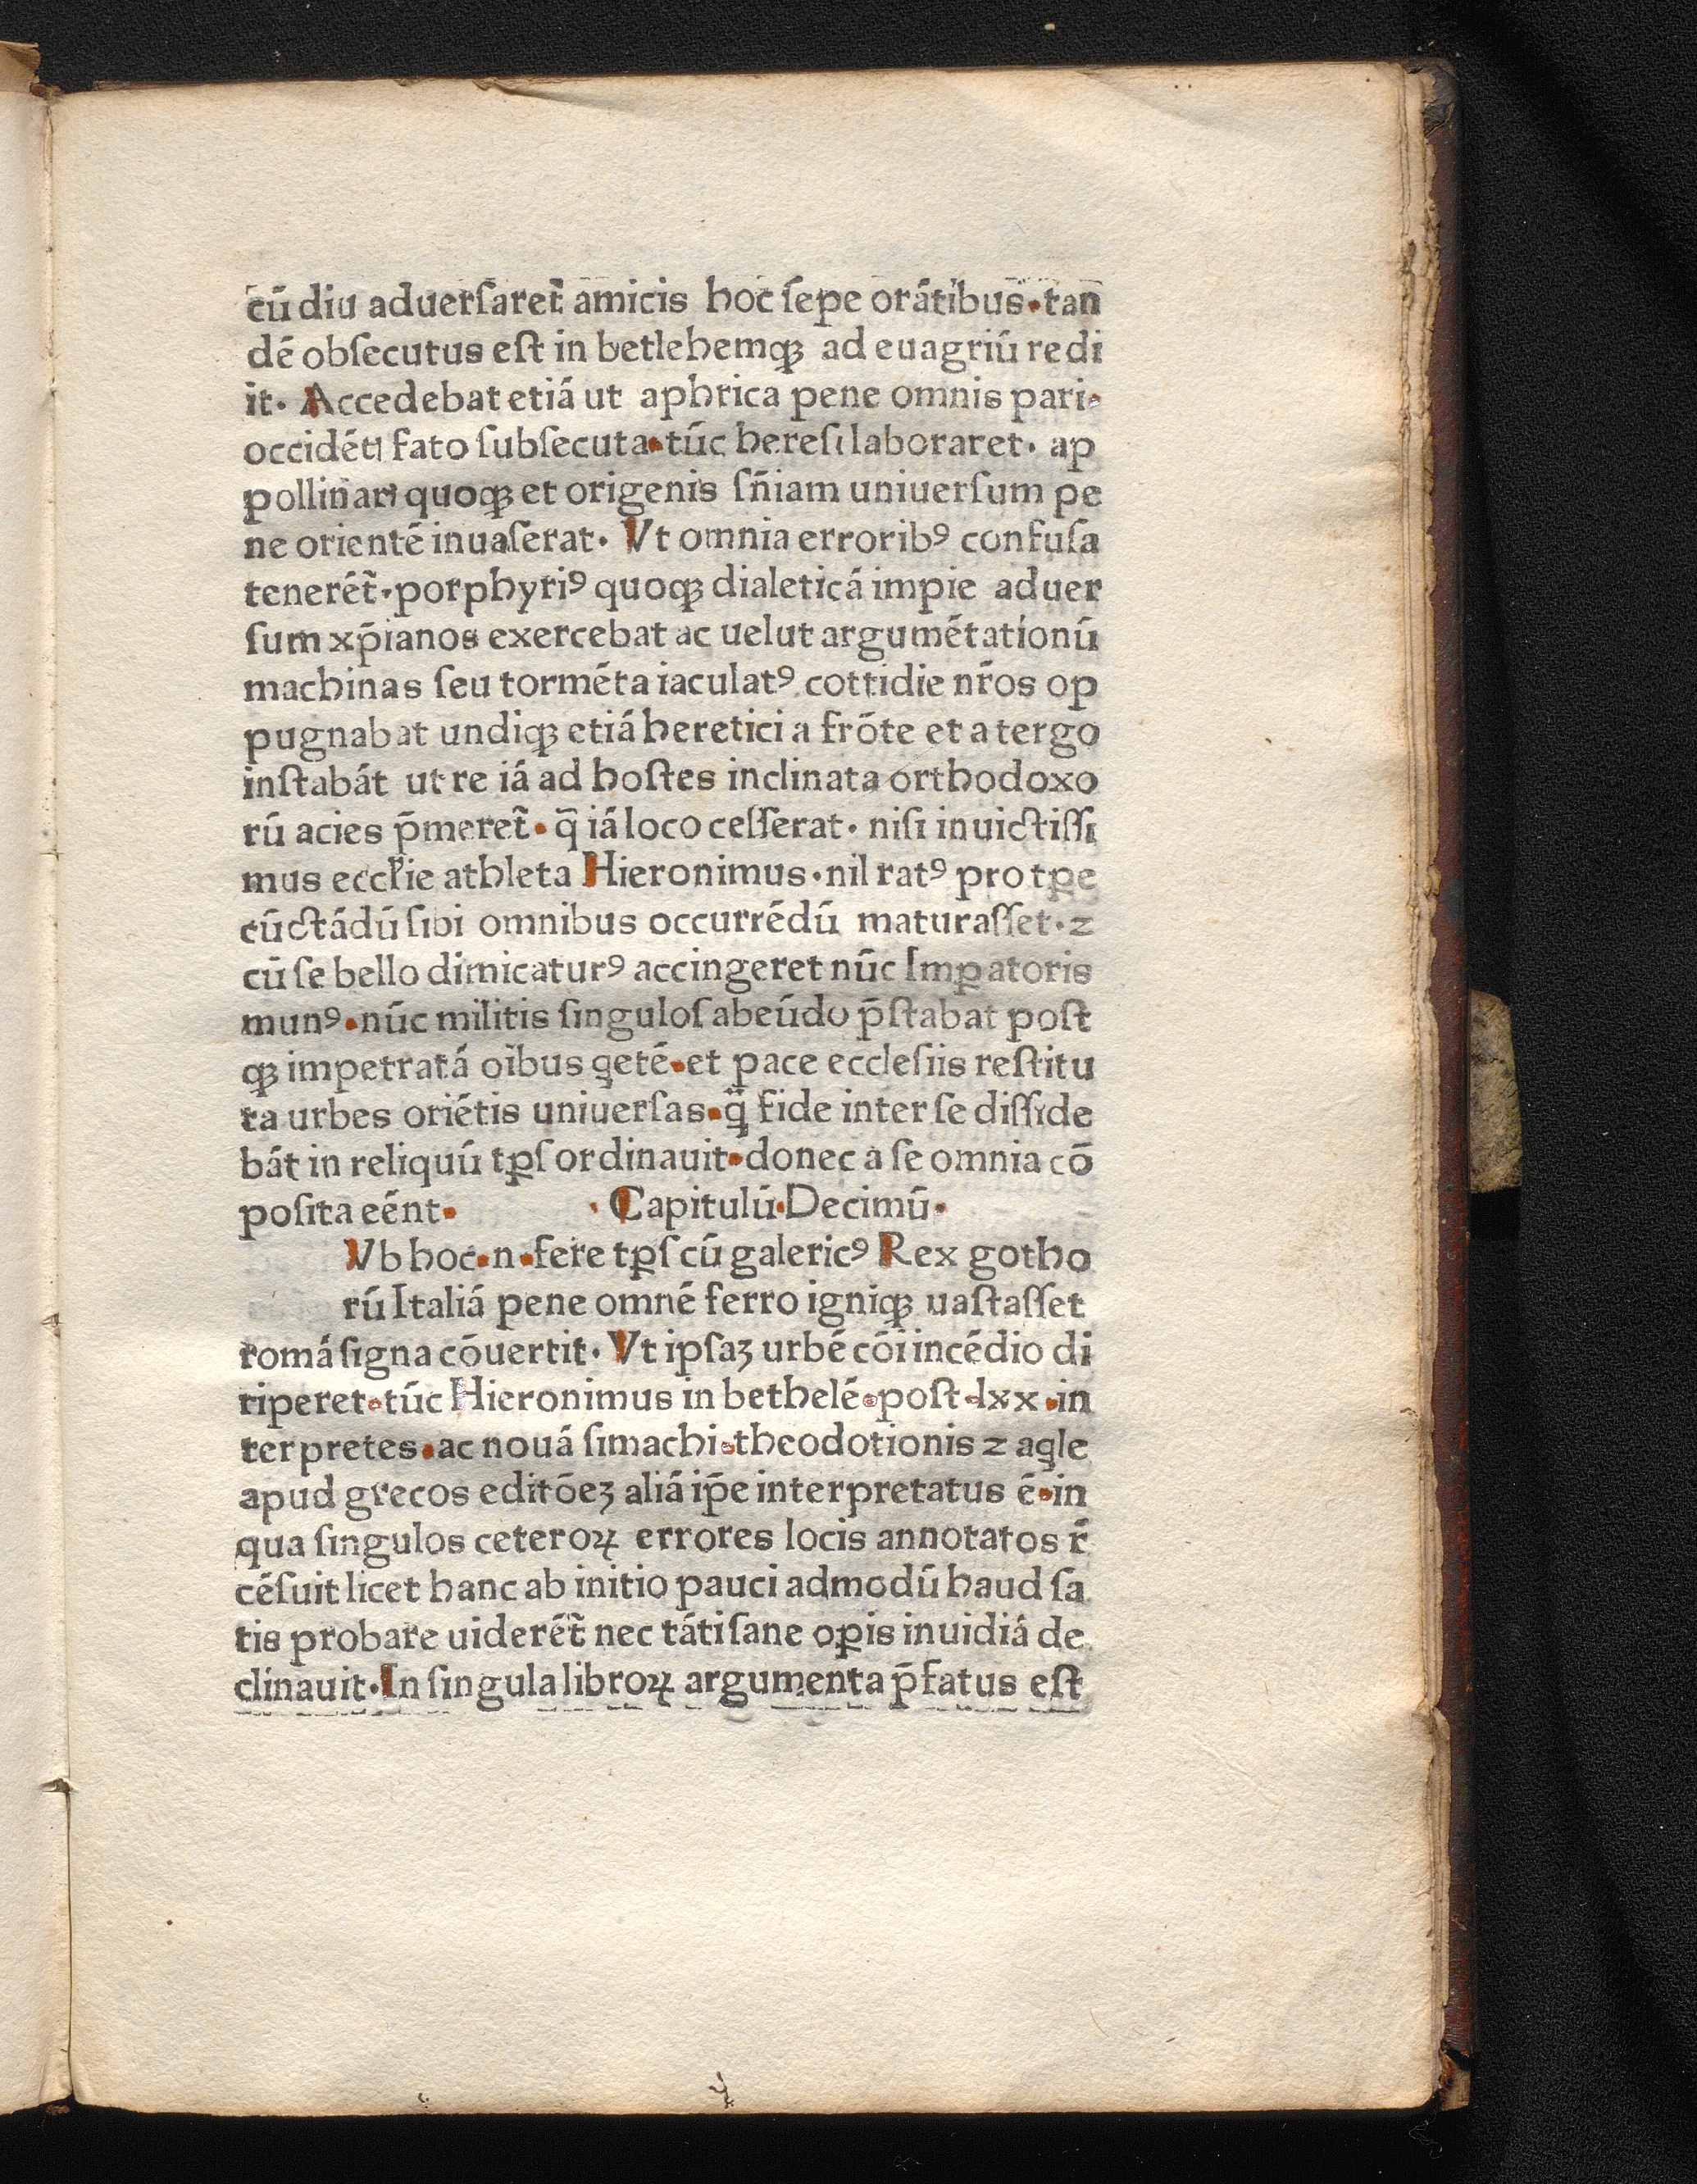 cū diu aduerſaret᷑ amicis hoc ſepe orātibus·tan
dē obſecutus eſt in betlehemqꝫ ad euagriū redi
it· Accedebat etiā ut aphrica pene omnis pari·
occidēti fato ſubſecuta·tūc hereſi laboraret· ap
pollinari quoqꝫ et origenis ſñiam uniuerſum pe
ne orientē inuaſerat· Vt omnia erroribꝰ confuſa
tenerēt᷑·porphyriꝰ quoqꝫ dialeticā impie aduer
ſum xp̄ianos exercebat ac uelut argumētationū
machinas ſeu tormēta iaculatꝰ cottidie nr̄os op
pugnabat undiqꝫ etiā heretici a frōte et a tergo
inſtabāt ut re iā ad hoſtes inclinata orthodoxo
rū acies p̄meret᷑·q̄ iā loco ceſſerat· niſi inuictiſſi
mus eccl̄ie athleta Hieronimus·nil ratꝰ pro tꝑe
cūctādū ſibi omnibus occurrēdū maturaſſet·⁊
cū ſe bello dimicaturꝰ accingeret nūc Imꝑatoris
munꝰ·nūc militis ſinguloſ abeūdo p̄ſtabat poſt
qꝫ impetratā oībus q̇etē·et pace eccleſiis reſtitu
ta urbes oriētis uniuerſas·q̄ fide inter ſe diſſide
bāt in reliquū tꝑſ ordinauit·donec a ſe omnia cō
poſita eēnt· · Capitulū·Decimū·
Vb hoc·n·fere tꝑſ cū galericꝰ Rex gotho
rū Italiā pene omnē ferro igniqꝫ uaſtaſſet
romā ſigna cōuertit· Vt ipſaꝫ urbē cōi incēdio di
riperet·tūc Hieronimus in bethelē·poſt·lxx·in
terpretes·ac nouā ſimachi·theodotionis ⁊ aq̇le
apud grecos editōeꝫ aliā ip̄e interpretatus ē·in
qua ſingulos ceteroꝝ errores locis annotatos r̄
cēſuit licet hanc ab initio pauci admodū haud ſa
tis probare uiderēt᷑ nec tāti ſane oꝑis inuidiā de
clinauit·In ſingula libroꝝ argumenta p̄fatus eſt